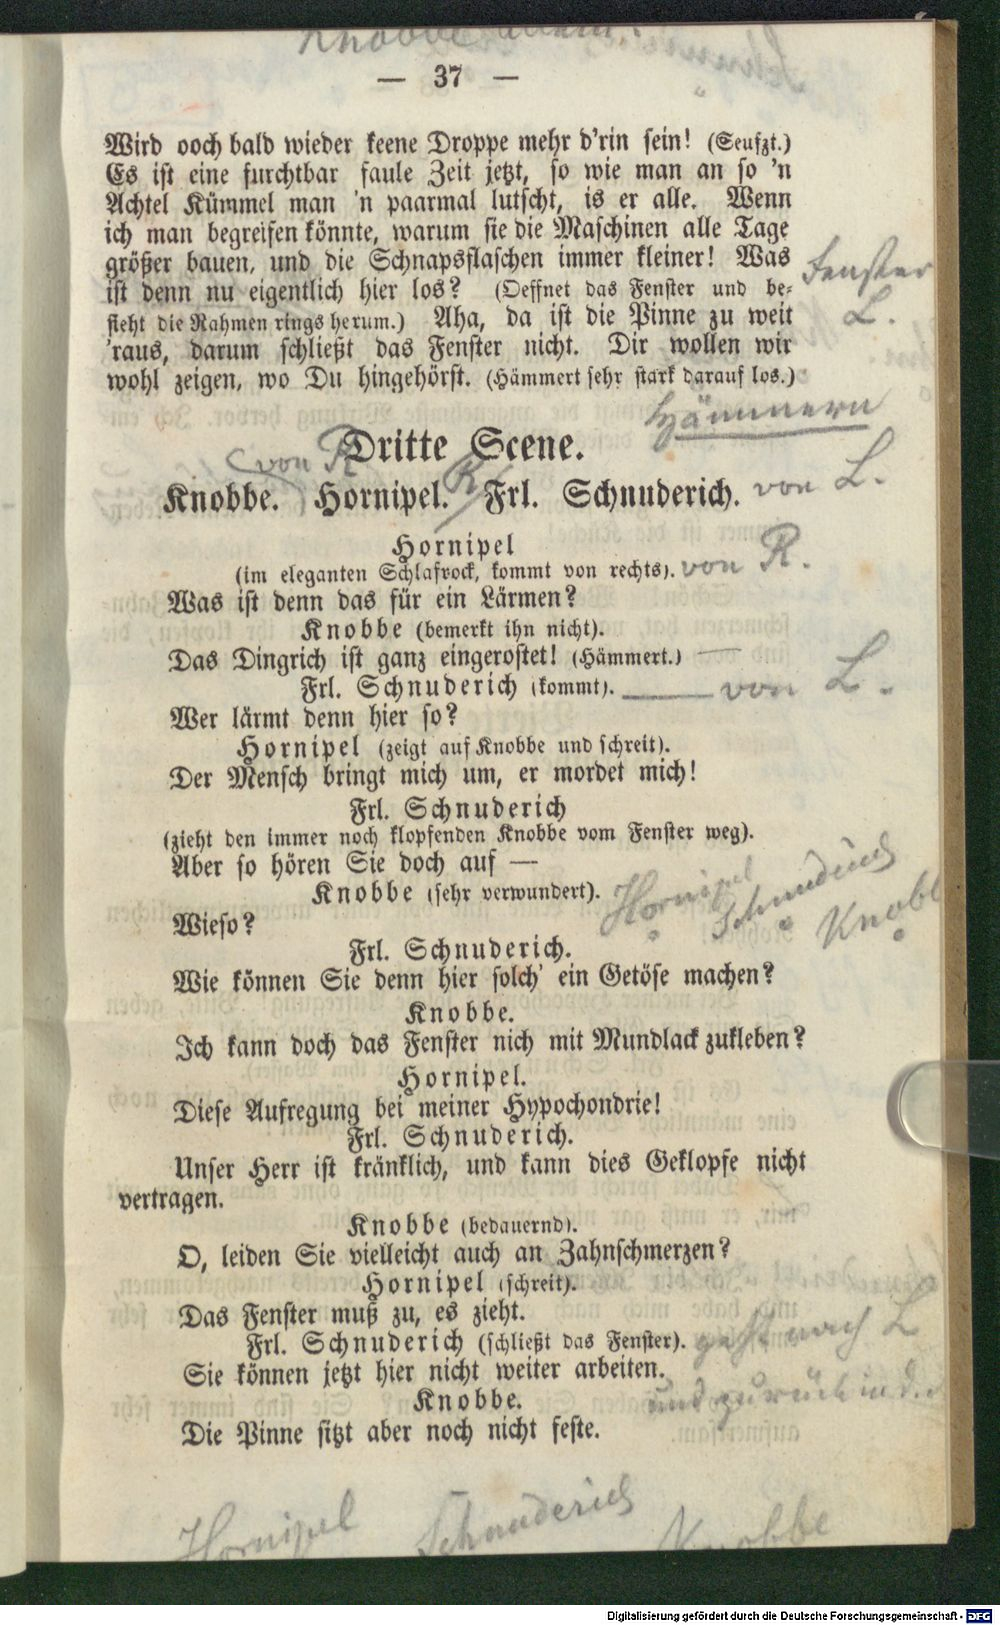 Knobbe allein.
— 37 —
Wird ooch bald wieder keene Droppe mehr d'rin sein! (Seufzt.)
Es ist eine furchtbar faule Zeit jetzt, so wie man an so 'n
Achtel Kümmel man 'n paarmal lutscht, is er alle. Wenn
ich man begreifen könnte, warum sie die Maschinen alle Tage
größer bauen, und die Schnapsflaschen immer kleiner! Was
ist denn nu eigentlich hier los? (Oeffnet das Fenster und be-
sieht die Rahmen rings herum.) Aha, da ist die Pinne zu weit
'raus, darum schließt das Fenster nicht. Dir wollen wir
wohl zeigen, wo Du hingehörst. (Hämmert sehr stark darauf los.)
Fenster
L.
Hämmern
Dritte Scene.
von R
Knobbe. Hornipel. R Frl. Schnuderich. von L.
Hornipel
(im eleganten Schlafrock, kommt von rechts). von R.
Was ist denn das für ein Lärmen?
Knobbe (bemerkt ihn nicht).
Das Dingrich ist ganz eingerostet! (Hämmert.) —
Frl. Schnuderich (kommt). — von L.
Wer lärmt denn hier so?
Hornipel (zeigt auf Knobbe und schreit).
Der Mensch bringt mich um, er mordet mich!
Frl. Schnuderich
(zieht den immer noch klopfenden Knobbe vom Fenster weg).
Aber so hören Sie doch auf —
Knobbe (sehr verwundert).
Hornipel Schnuderich Knobbe
Wieso?
Frl. Schnuderich.
Wie können Sie denn hier solch' ein Getöse machen?
Knobbe.
Ich kann doch das Fenster nich mit Mundlack zukleben?
Hornipel.
Diese Aufregung bei meiner Hypochondrie!
Frl. Schnuderich.
Unser Herr ist kränklich, und kann dies Geklopfe nicht
vertragen.
Knobbe (bedauernd).
O, leiden Sie vielleicht auch an Zahnschmerzen?
Hornipel (schreit).
Das Fenster muß zu, es zieht.
Frl. Schnuderich (schließt das Fenster). geht nach L
Sie können jetzt hier nicht weiter arbeiten.
und zurück in d.
Knobbe.
Die Pinne sitzt aber noch nicht feste.
Hornipel Schnuderich Knobbe
Digitalisierung gefördert durch die Deutsche Forschungsgemeinschaft - DFG